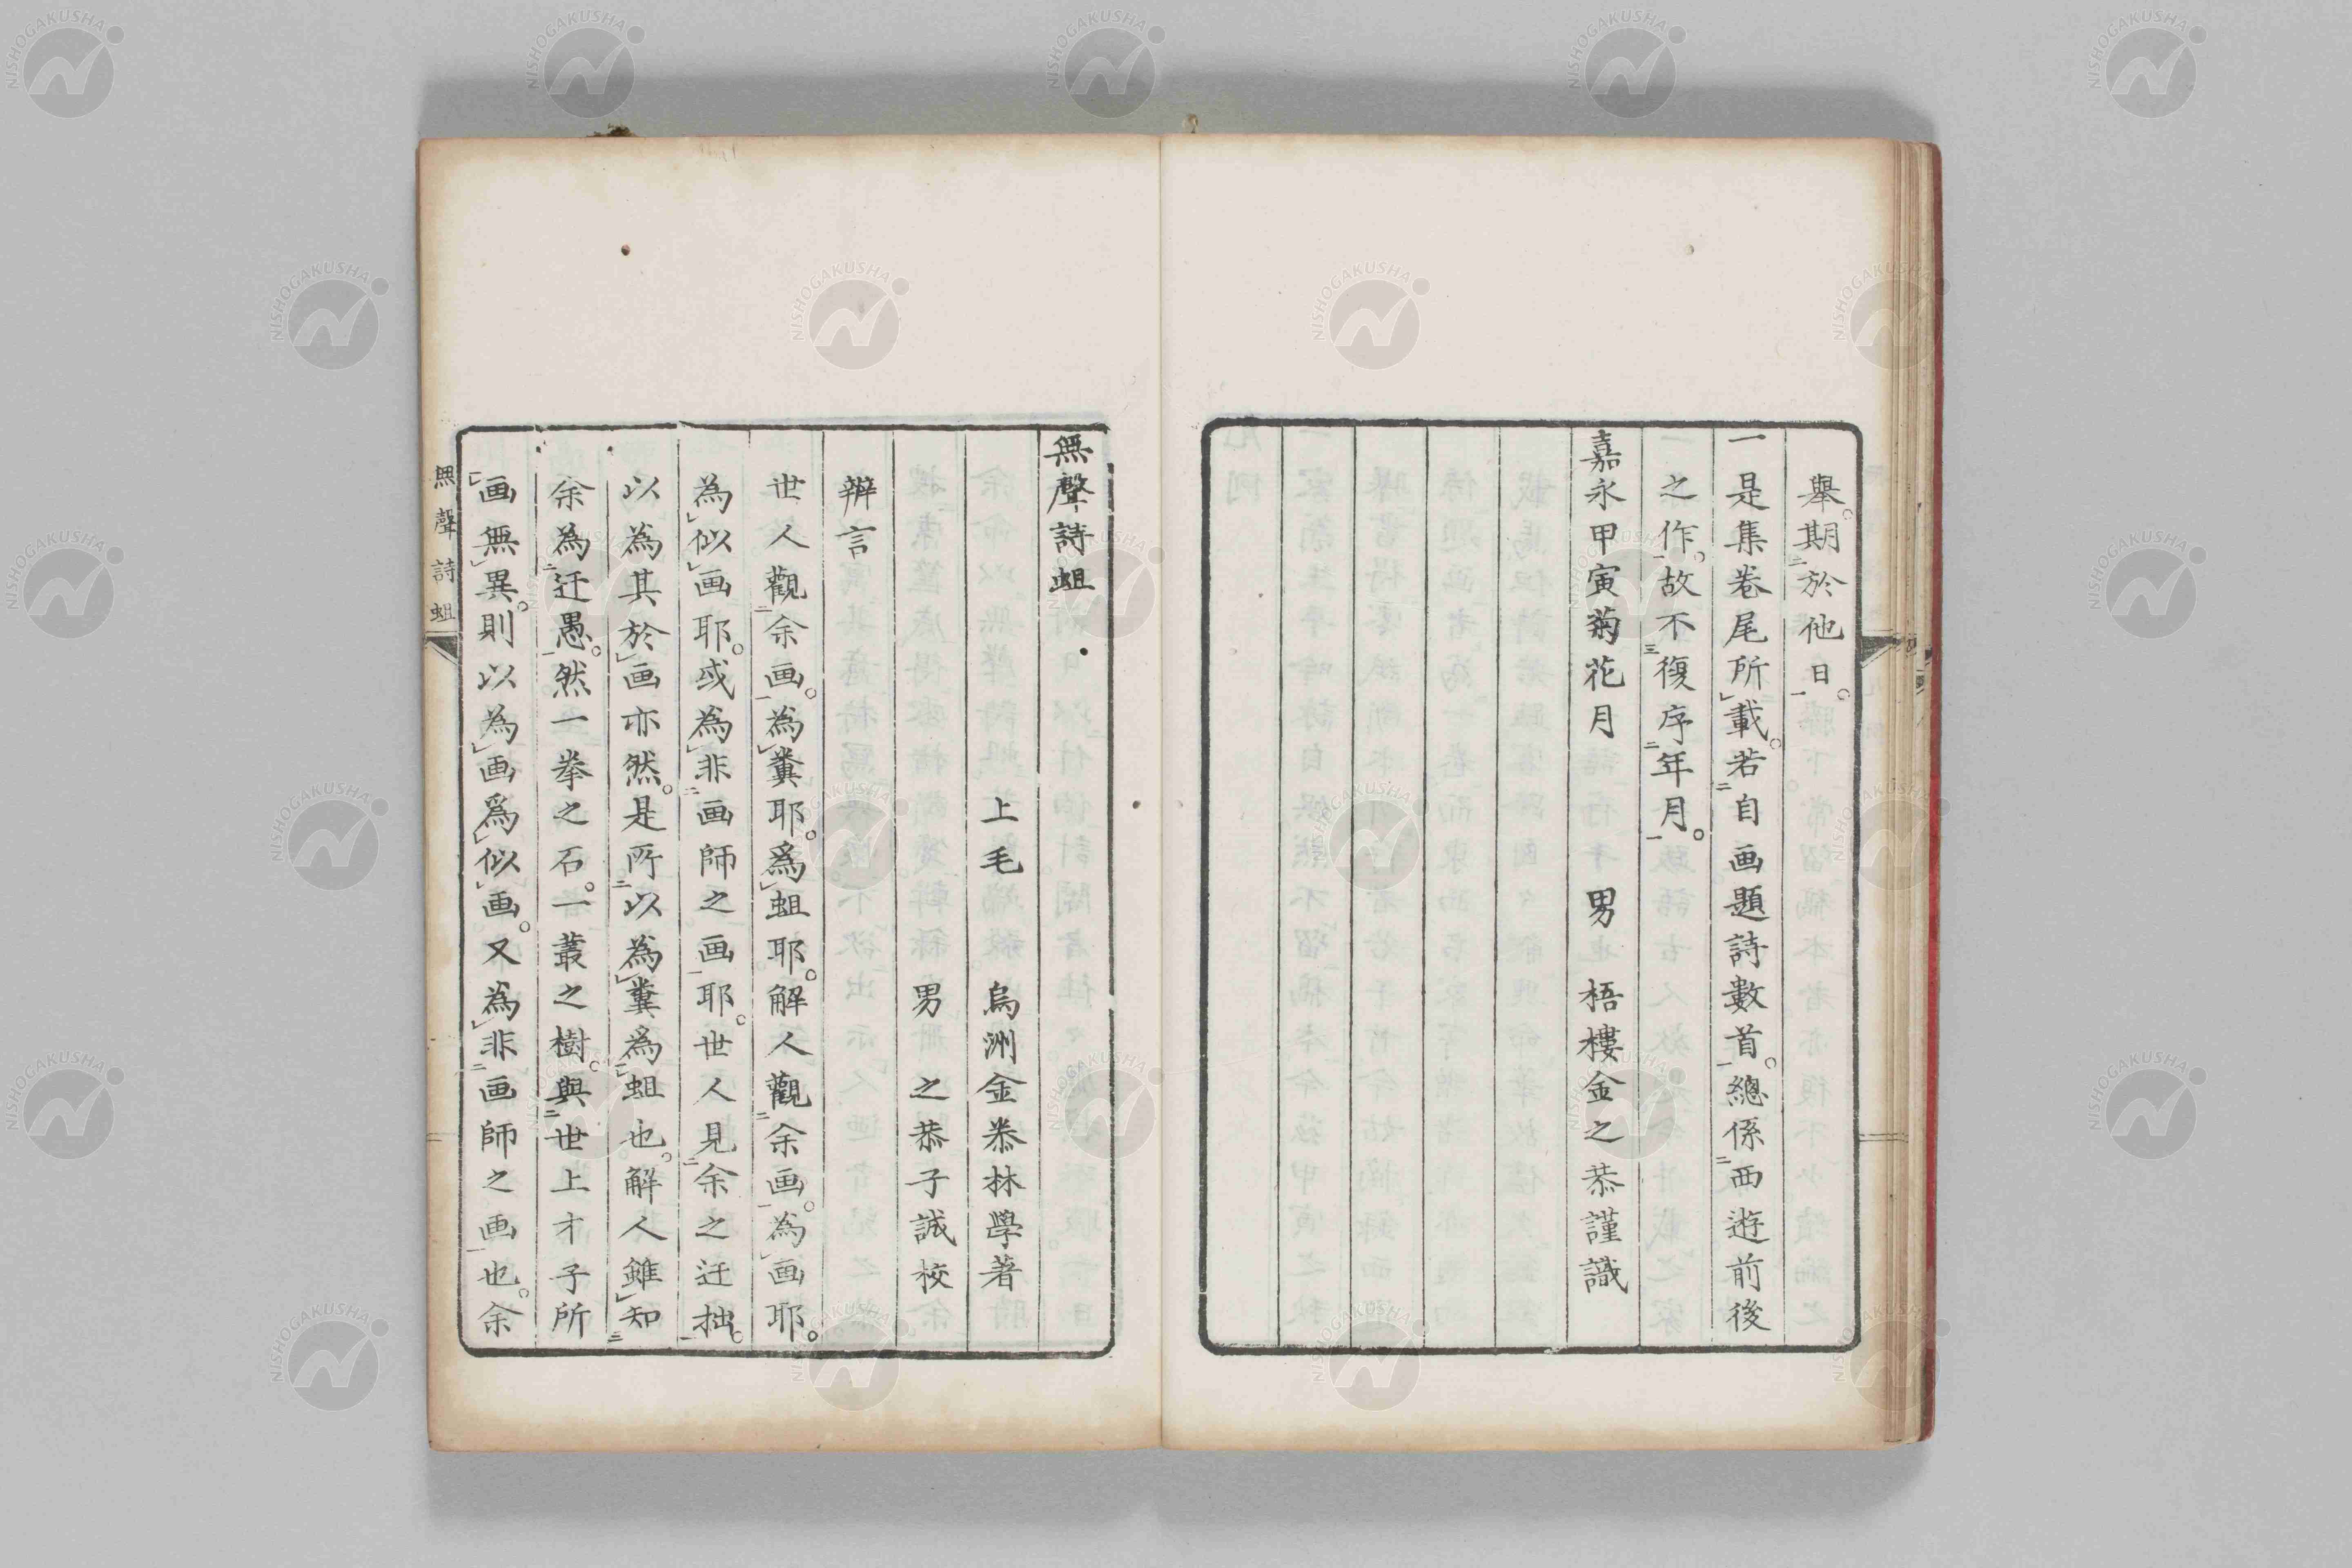 舉。期於他日。
一是集卷尾所載。若自画題詩數首。總係西遊前後
之作。故不復序年月。
嘉永甲寅菊花月　男　梧樓金之恭謹識
無聲詩蛆
上毛　烏洲金㳟林學著
男　之恭子誠校
辨言
世人觀余画。為糞耶。爲蛆耶。解人觀余画。為画耶。
為似画耶。或為非画師之画耶。世人見余之迂拙。
以為其於画亦然。是所以為糞爲蛆也。解人雖知
余為迂愚。然一拳之石。一叢之樹。與世上才子所
画無異。則以為画爲似画。又為非画師之画也。余
無聲詩蛆
NISHOGAKUSHA